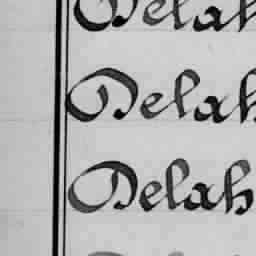 Delah
Delah
Delah